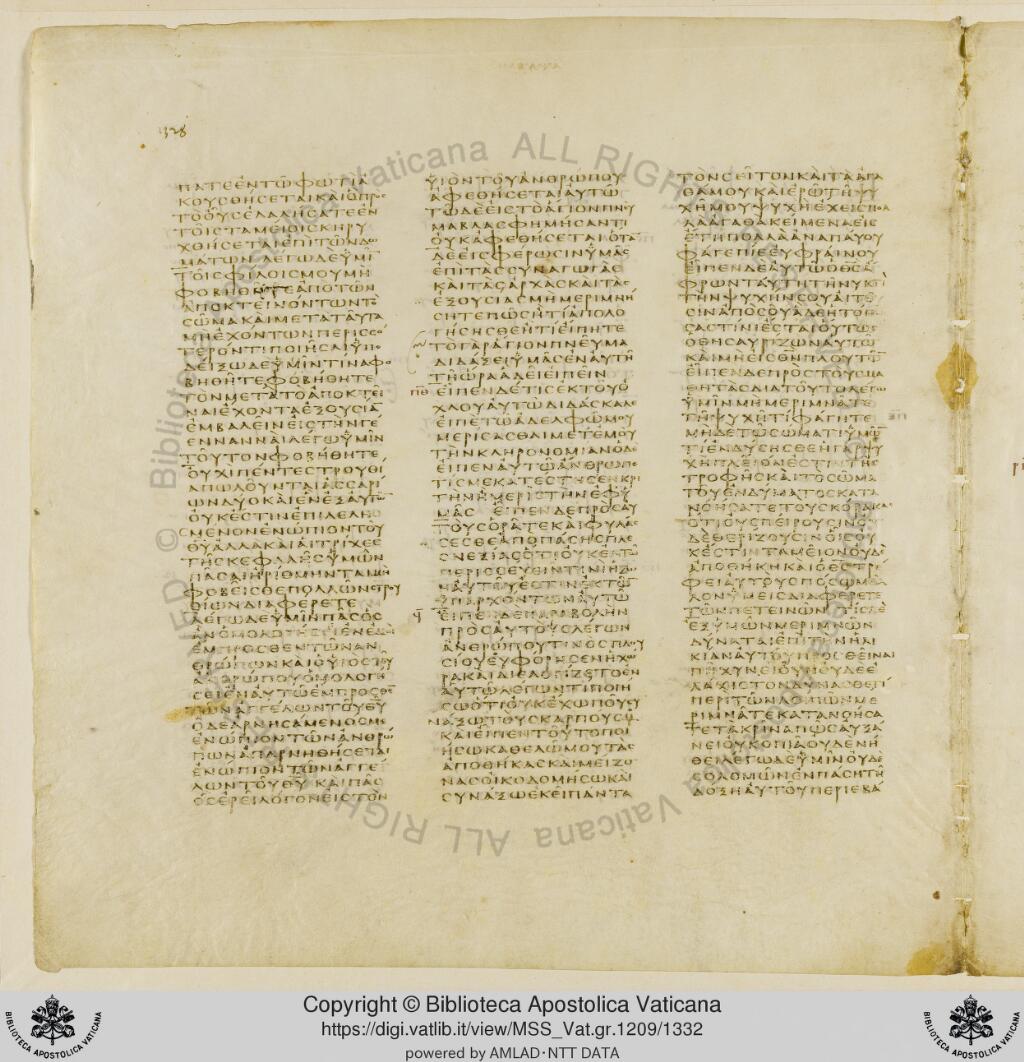 1328
ΠΑΤΕΕΝΤΩΦΩΤΙΑ
ΚΟΥΣΘΗΣΕΤΑΙΚΑΙΟΠΡΟ
ΤΟΟΥΣΕΛΑΛΗΣΑΤΕΕΝ
ΤΟΙΣΤΑΜΕΙΟΙΣΚΗΡΥ
ΧΘΗΣΕΤΑΙΕΠΙΤΩΝΔΩ
ΜΑΤΩΝΛΕΓΩΔΕΥΜΙ
ΤΟΙΣΦΙΛΟΙΣΜΟΥΜΗ
ΦΟΒΗΘΗΤΕΑΠΟΤΩΝ
ΑΠΟΚΤΕΙΝΟΝΤΩΝΤΟ
ΣΩΜΑΚΑΙΜΕΤΑΤΑΥΤΑ
ΜΗΕΧΟΝΤΩΝΠΕΡΙΣΣΟ
ΤΕΡΟΝΤΙΠΟΙΗΣΑΙΥΠΟ
ΔΕΙΞΩΔΕΥΜΙΝΤΙΝΑΦΟ
ΒΗΘΗΤΕΦΟΒΗΘΗΤΕ
ΤΟΝΜΕΤΑΤΟΑΠΟΚΤΕΙ
ΝΑΙΕΧΟΝΤΑΕΞΟΥΣΙΑ
ΕΜΒΑΛΕΙΝΕΙΣΤΗΝΓΕ
ΕΝΝΑΝΝΑΙΛΕΓΩΥΜΙΝ
ΤΟΥΤΟΝΦΟΒΗΘΗΤΕ
ΟΥΧΙΠΕΝΤΕΣΤΡΟΥΘΙ
ΑΠΩΛΟΥΝΤΑΙΑΣΣΑΡΙ
ΩΝΔΥΟΚΑΙΕΝΕΞΑΥΤΩ
ΟΥΚΕΣΤΙΝΕΠΙΛΕΛΗ
ΣΜΕΝΟΝΕΝΩΠΙΟΝΤΟΥ
ΘΥΑΛΛΑΚΑΙΑΙΤΡΙΧΕΣ
ΤΗΣΚΕΦΑΛΗΣΥΜΩΝ
ΠΑΣΑΙΗΡΙΘΜΗΝΤΑΙΜΗ
ΦΟΒΕΙΣΘΕΠΟΛΛΩΝΣΤΡΟΥ
ΘΙΩΝΔΙΑΦΕΡΕΤΕ
ΛΕΓΩΔΕΥΜΙΝΠΑΣΟΣ
ΑΝΟΜΟΛΟΓΗΣΕΙΕΝΕΜΟΙ
ΕΜΠΡΟΣΘΕΝΤΩΝΑΝ
ΘΡΩΠΩΝΚΑΙΟΥΙΟΣΤΟΥ
ΑΝΘΡΩΠΟΥΟΜΟΛΟΓΗ
ΣΕΙΕΝΑΥΤΩΕΜΠΡΟΣΘΕ
ΤΩΝΑΓΓΕΛΩΝΤΟΥΘΥ
ΟΔΕΑΡΝΗΣΑΜΕΝΟΣΜΕ
ΕΝΩΠΙΟΝΤΩΝΑΝΘΡΩ
ΠΩΝΑΠΑΡΝΗΘΗΣΕΤΑΙ
ΕΝΩΠΙΟΝΤΩΝΑΓΓΕ
ΛΩΝΤΟΥΘΥ ΚΑΙΠΑΣ
ΟΣΕΡΕΙΛΟΓΟΝΕΙΣΤΟΝ
ΥΙΟΝΤΟΥΑΝΘΡΩΠΟΥ
ΑΦΕΘΗΣΕΤΑΙΑΥΤΩ
ΤΩΔΕΕΙΣΤΟΑΓΙΟΝΠΝΥ
ΜΑΒΛΑΣΦΗΜΗΣΑΝΤΙ
ΟΥΚΑΦΕΘΗΣΕΤΑΙΟΤΑ
ΔΕΕΙΣΦΕΡΩΣΙΝΥΜΑΣ
ΕΠΙΤΑΣΣΥΝΑΓΩΓΑΣ
ΚΑΙΤΑΣΑΡΧΑΣΚΑΙΤΑΣ
ΕΞΟΥΣΙΑΣΜΗΜΕΡΙΜΝΗ
ΣΗΤΕΠΩΣΗΤΙΑΠΟΛΟ
ΓΗΣΗΣΘΕΗΤΙΕΙΠΗΤΕ
ΤΟΓΑΡΑΓΙΟΝΠΝΕΥΜΑ
ΔΙΔΑΞΕΙΥΜΑΣΕΝΑΥΤΗ
ΤΗΩΡΑΑΔΕΙΕΙΠΕΙΝ
ΠΘ ΕΙΠΕΝΔΕΤΙΣΕΚΤΟΥΟ
ΧΛΟΥΑΥΤΩΔΙΔΑΣΚΑΛΕ
ΕΙΠΕΤΩΑΔΕΛΦΩΜΟΥ
ΜΕΡΙΣΑΣΘΑΙΜΕΤΕΜΟΥ
ΤΗΝΚΛΗΡΟΝΟΜΙΑΝΟΔΕ
ΕΙΠΕΝΑΥΤΩΑΝΘΡΩΠΕ
ΤΙΣΜΕΚΑΤΕΣΤΗΣΕΝΚΡΙ
ΤΗΝΗΜΕΡΙΣΤΗΝΕΦΥ
ΜΑΣ ΕΙΠΕΝΔΕΠΡΟΣΑΥ
ΤΟΥΣΟΡΑΤΕΚΑΙΦΥΛΑΣ
ΣΕΣΘΕΑΠΟΠΑΣΗΣΠΛΕΟ
ΝΕΞΙΑΣΟΤΙΟΥΚΕΝΤΩ
ΠΕΡΙΣΣΕΥΕΙΝΤΙΝΙΗΖΩ
ΗΑΥΤΟΥΕΣΤΙΝΕΚΤΩΝ
ΥΠΑΡΧΟΝΤΩΝΑΥΤΩ
Ϟ ΕΙΠΕΝΔΕΠΑΡΑΒΟΛΗΝ
ΠΡΟΣΑΥΤΟΥΣΛΕΓΩΝ
ΑΝΘΡΩΠΟΥΤΙΝΟΣΠΛΟΥ
ΣΙΟΥΕΥΦΟΡΗΣΕΝΗΧΩ
ΡΑΚΑΙΔΙΕΛΟΓΙΖΕΤΟΕΝ
ΑΥΤΩΛΕΓΩΝΤΙΠΟΙΗ
ΣΩΟΤΙΟΥΚΕΧΩΠΟΥΣΥ
ΝΑΞΩΤΟΥΣΚΑΡΠΟΥΣΜΟΥ
ΚΑΙΕΙΠΕΝΤΟΥΤΟΠΟΙ
ΗΣΩΚΑΘΕΛΩΜΟΥΤΑΣ
ΑΠΟΘΗΚΑΣΚΑΙΜΕΙΖΟ
ΝΑΣΟΙΚΟΔΟΜΗΣΩΚΑΙ
ΣΥΝΑΞΩΕΚΕΙΠΑΝΤΑ
ΤΟΝΣΕΙΤΟΝΚΑΙΤΑΑΓΑ
ΘΑΜΟΥΚΑΙΕΡΩΤΗΨΥ
ΧΗΜΟΥΨΥΧΗΕΧΕΙΣΠΟΛ
ΛΑΑΓΑΘΑΚΕΙΜΕΝΑΕΙΣ
ΕΤΗΠΟΛΛΑΑΝΑΠΑΥΟΥ
ΦΑΓΕΠΙΕΕΥΦΡΑΙΝΟΥ
ΕΙΠΕΝΔΕΑΥΤΩΟΘΣΑ
ΦΡΩΝΤΑΥΤΗΤΗΝΥΚΤΙ
ΤΗΝΨΥΧΗΝΣΟΥΑΙΤΟΥ
ΣΙΝΑΠΟΣΟΥΑΔΕΗΤΟΙΜΑ
ΣΑΣΤΙΝΙΕΣΤΑΙΟΥΤΩΣ
ΟΘΗΣΑΥΡΙΖΩΝΑΥΤΩ
ΚΑΙΜΗΕΙΣΘΝΠΛΟΥΤΩ
ΕΙΠΕΝΔΕΠΡΟΣΤΟΥΣΜΑ
ΘΗΤΑΣΔΙΑΤΟΥΤΟΛΕΓΩ
ΥΜΙΝΜΗΜΕΡΙΜΝΑΤΕ
ΤΗΨΥΧΗΤΙΦΑΓΗΤΕ
ΜΗΔΕΤΩΣΩΜΑΤΙΥΜΩ
ΤΙΕΝΔΥΣΗΣΘΕΗΓΑΡΨΥ
ΧΗΠΛΕΙΟΝΕΣΤΙΝΤΗΣ
ΤΡΟΦΗΣΚΑΙΤΟΣΩΜΑ
ΤΟΥΕΝΔΥΜΑΤΟΣΚΑΤΑ
ΝΟΗΣΑΤΕΤΟΥΣΚΟΡΑΚΑΣ
ΟΤΙΟΥΣΠΕΙΡΟΥΣΙΝΟΥ
ΔΕΘΕΡΙΖΟΥΣΙΝΟΙΣΟΥ
ΚΕΣΤΙΝΤΑΜΕΙΟΝΟΥΔΕ
ΑΠΟΘΗΚΗΚΑΙΟΘΣΤΡΕ
ΦΕΙΑΥΤΟΥΣΠΟΣΩΜΑΛ
ΛΟΝΥΜΕΙΣΔΙΑΦΕΡΕΤΕ
ΤΩΝΠΕΤΕΙΝΩΝΤΙΣΔΕ
ΕΞΥΜΩΝΜΕΡΙΜΝΩΝ
ΔΥΝΑΤΑΙΕΠΙΤΗΝΗΛΙ
ΚΙΑΝΑΥΤΟΥΠΡΟΣΘΕΙΝΑΙ
ΠΗΧΥΝΕΙΟΥΝΟΥΔΕΕ
ΛΑΧΙΣΤΟΝΔΥΝΑΣΘΕΤΙ
ΠΕΡΙΤΩΝΛΟΙΠΩΝΜΕ
ΡΙΜΝΑΤΕΚΑΤΑΝΟΗΣΑ
ΤΕΤΑΚΡΙΝΑΠΩΣΑΥΞΑ
ΝΕΙΟΥΚΟΠΙΑΟΥΔΕΝΗ
ΘΕΙΛΕΓΩΔΕΥΜΙΝΟΥΔΕ
ΣΟΛΟΜΩΝΕΝΠΑΣΗΤΗ
ΔΟΞΗΑΥΤΟΥΠΕΡΙΕΒΑ
Copyright © Biblioteca Apostolica Vaticana
https://digi.vatlib.it/view/MSS_Vat.gr.1209/1332
powered by AMLAD·NTT DATA
BIBLIOTECA APOSTOLICA VATICANA
BIBLIOTECA APOSTOLICA VATICANA